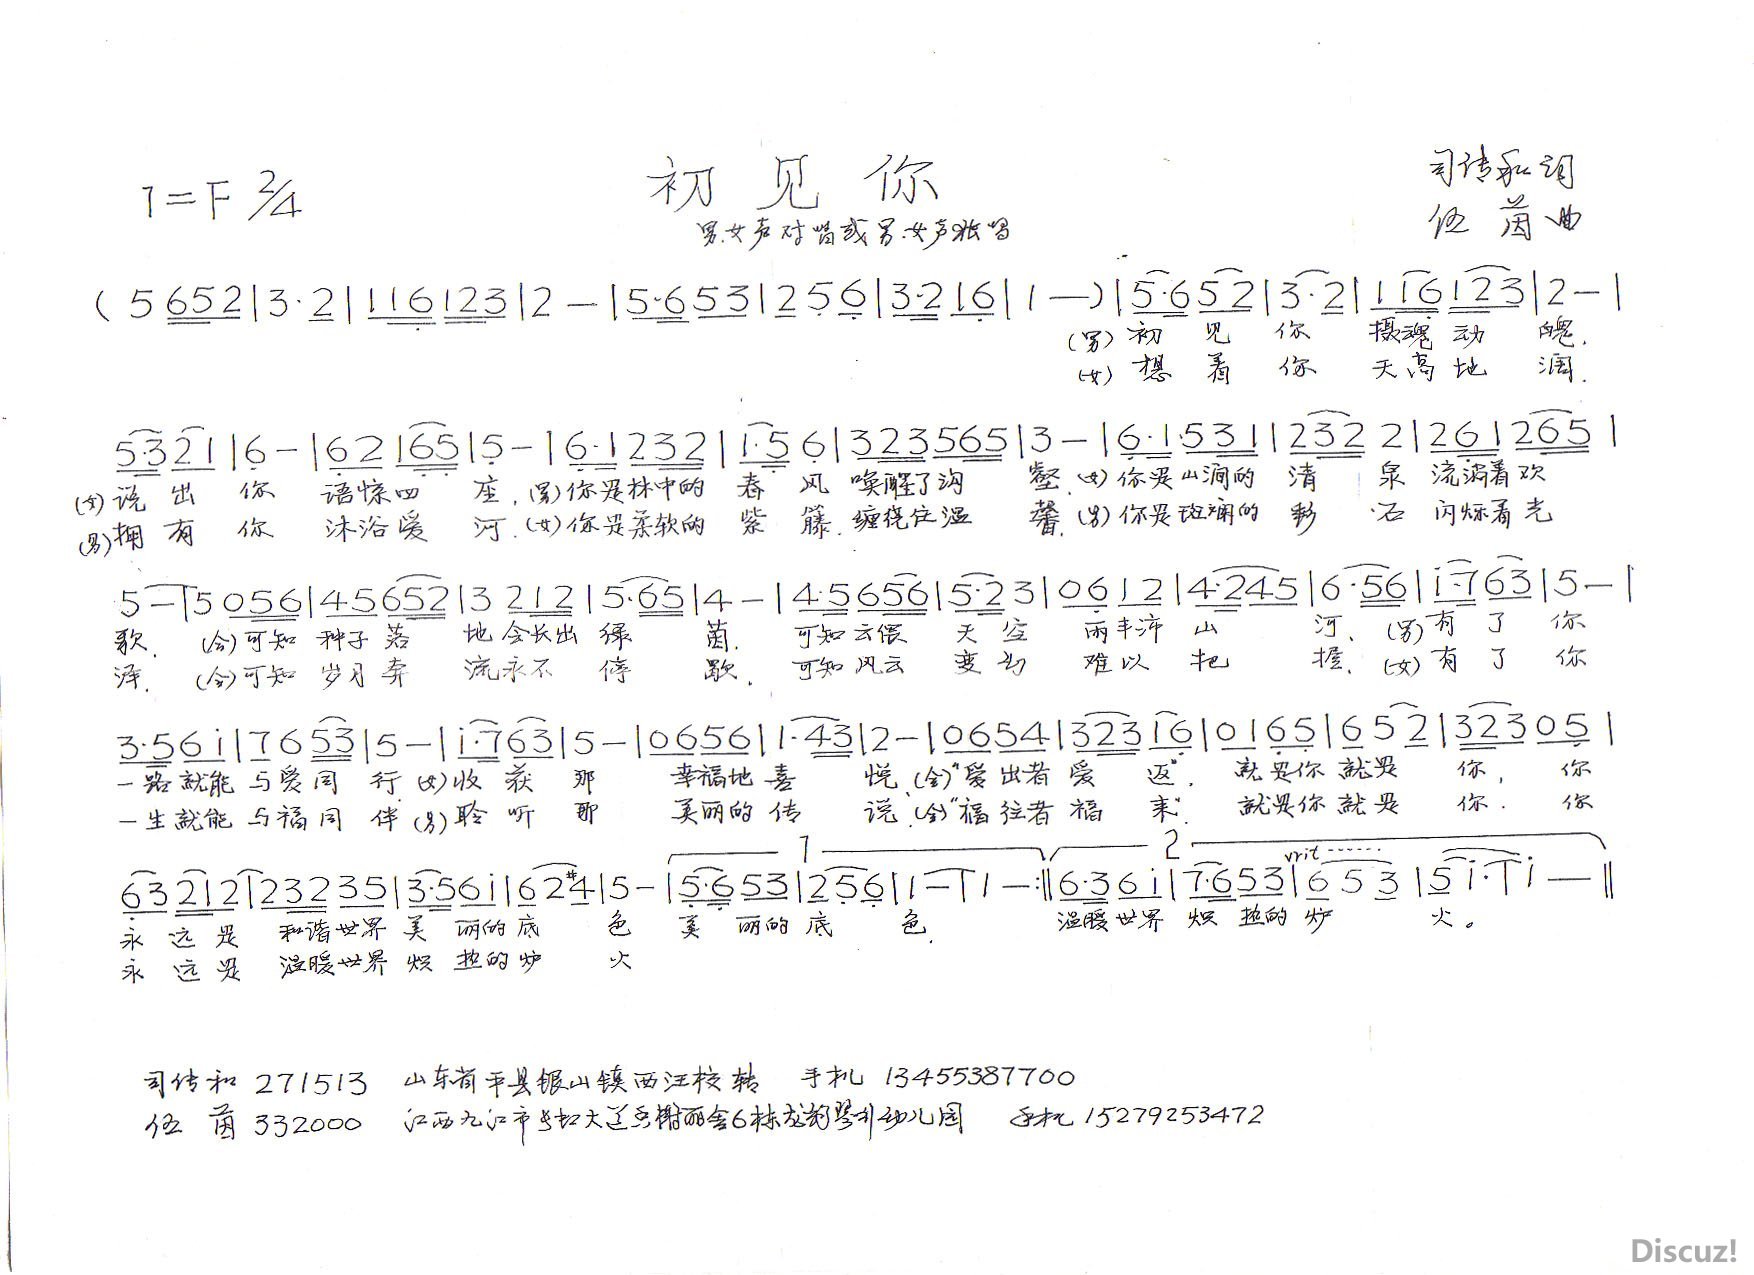 1=F 2/4
初见你
男.女声对唱或男.女声独唱
司传和词
伍茵曲
( 5 652 | 3·2 | 116 123 | 2 — | 5·6 53 | 2 56 | 3·2 16 | 1 — ) | 5·6 52 | 3·2 | 116 123 | 2 — |
(男) 初 见 你 摄魂 动 魄.
(女) 想 着 你 天高 地 阔.
5·3 21 | 6 — | 62 165 | 5 — | 6·1 232 | 1·5 6 | 323 565 | 3 — | 6·1 531 | 232 2 | 261 265 |
(女) 说 出 你 语惊四 座. (男) 你是林中的 春 风 唤醒了沟 壑. (女) 你是山涧的 清 泉 流淌着欢
(男) 拥 有 你 沐浴爱 河. (女) 你是柔软的 紫 藤. 缠绕住温 馨. (男) 你是斑斓的 彩 石 闪烁着光
5 — | 5 056 | 45 652 | 3 212 | 5·65 | 4 — | 4·5 656 | 5·2 3 | 06 12 | 4·245 | 6·56 | i·7 63 | 5 — |
歌. (合) 可知 种子 落 地会长出 绿 茵. 可知云偎 天 空 雨丰沛 山 河. (男) 有 了 你
泽. (合) 可知 岁月 奔 流永不 停 歇. 可知风云 变幻 难以 把 握. (女) 有 了 你
3·5 6i | 76 53 | 5 — | i·7 63 | 5 — | 06 56 | 1·43 | 2 — | 06 54 | 323 16 | 01 65 | 6 5 2 | 323 05 |
一路就能 与爱同 行. (女) 收 获 那 幸福地 喜 悦. (合) “爱 出者 爱 返”. 就是你 就是 你, 你
一生就能 与福同 伴 (男) 聆 听 那 美丽的 传 说. (合) “福 往者 福 来”. 就是你 就是 你. 你
1
2
rit
63 212 | 232 35 | 3·5 6i | 6 2 #4 | 5 — | 5·6 53 | 2 56 | 1 — | 1 — :‖ 6·3 6i | 7·6 53 | 6 5 3 | 5 i· | i — ‖
永 远 是 和谐世界 美 丽的底 色 美 丽的底 色. 温暖世界 炽 热的炉 火。
永 远 是 温暖世界 炽 热的炉 火
司传和 271513 山东省平县银山镇西汪校转 手机 13455387700
伍茵 332000 江西九江市 大道 榭丽舍6栋 幼儿园 手机 15279253472
Discuz!